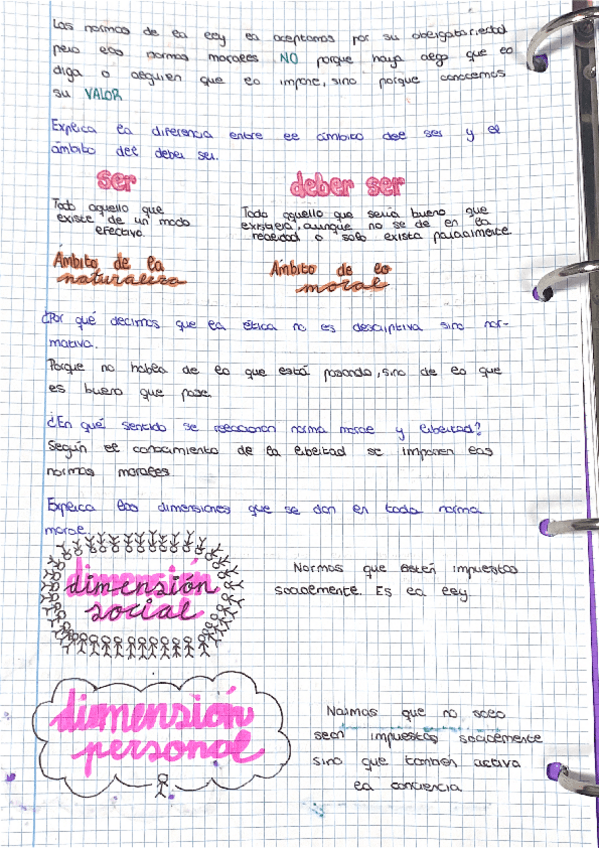 Las normas de la ley la aceptamos por su obligatoriedad
pero las normas morales NO porque haya algo que lo
diga o alguien que lo impone, sino porque conocemos
su VALOR
Explica la diferencia entre el ámbito del ser y el
ámbito del deber ser.
ser
Todo aquello que
existe de un modo
efectivo.
Ámbito de la
naturaleza
deber ser
Todo aquello que sería bueno que
existiera, aunque no se de en la
realidad o solo exista parcialmente.
Ámbito de lo
moral
¿Por qué decimos que la ética no es descriptiva sino nor-
mativa.
Porque no habla de lo que está pasando, sino de lo que
es bueno que pase.
¿En qué sentido se relacionan norma moral y libertad?
Según el conocimiento de la libertad se imponen las
normas morales
Explica las dimensiones que se dan en toda norma
moral.
dimensión
social
Normas que estén impuestas
socialmente. Es la ley
dimensión
personal
Normas que no solo
sean impuestas socialmente
sino que también activa
la conciencia.